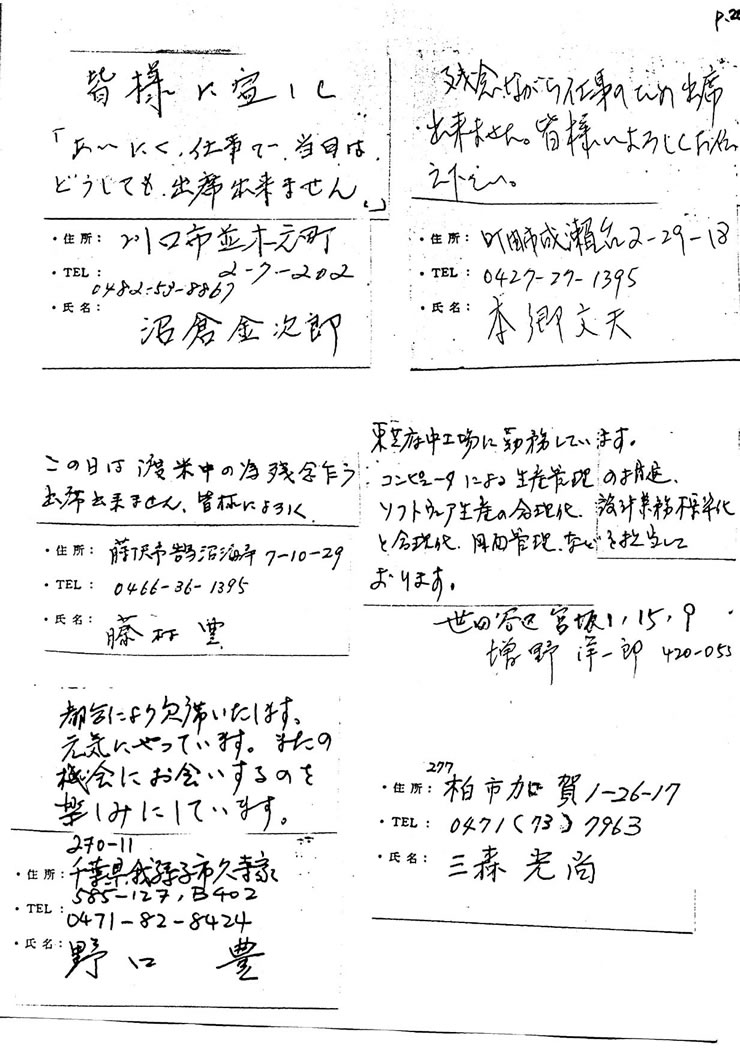 p.20
皆様に宜しく
「あいにく、仕事で、当日は、
どうしても、出席出来ません。」
・住所： 川口市並木元町
2-7-202
・TEL： 0482-53-8867
・氏名： 沼倉金次郎
残念ながら仕事のため出席
出来ません。皆様によろしくお伝
え下さい。
・住所： 町田市成瀬台2-29-18
・TEL： 0427-27-1395
・氏名： 本郷文夫
この日は渡米中の為残念乍ら
出席出来ません、皆様によろしく
・住所： 藤沢市鵠沼海岸7-10-29
・TEL： 0466-36-1395
・氏名： 藤村 豊
東芝府中工場に勤務しています。
コンピュータによる生産管理の推進、
ソフトウェア生産の合理化、設計業務標準化
と合理化、月内管理、などを担当して
おります。
世田谷区宮坂1,15,9
増野 洋一郎 420-053
都合により欠席いたします。
元気にやっています。またの
機会にお会いするのを
楽しみにしています。
270-11
・住所： 千葉県我孫子市久寺家
585-127, B402
・TEL： 0471-82-8424
・氏名： 野口 豊
277
・住所： 柏市加賀1-26-17
・TEL： 0471(73)7963
・氏名： 三森光尚